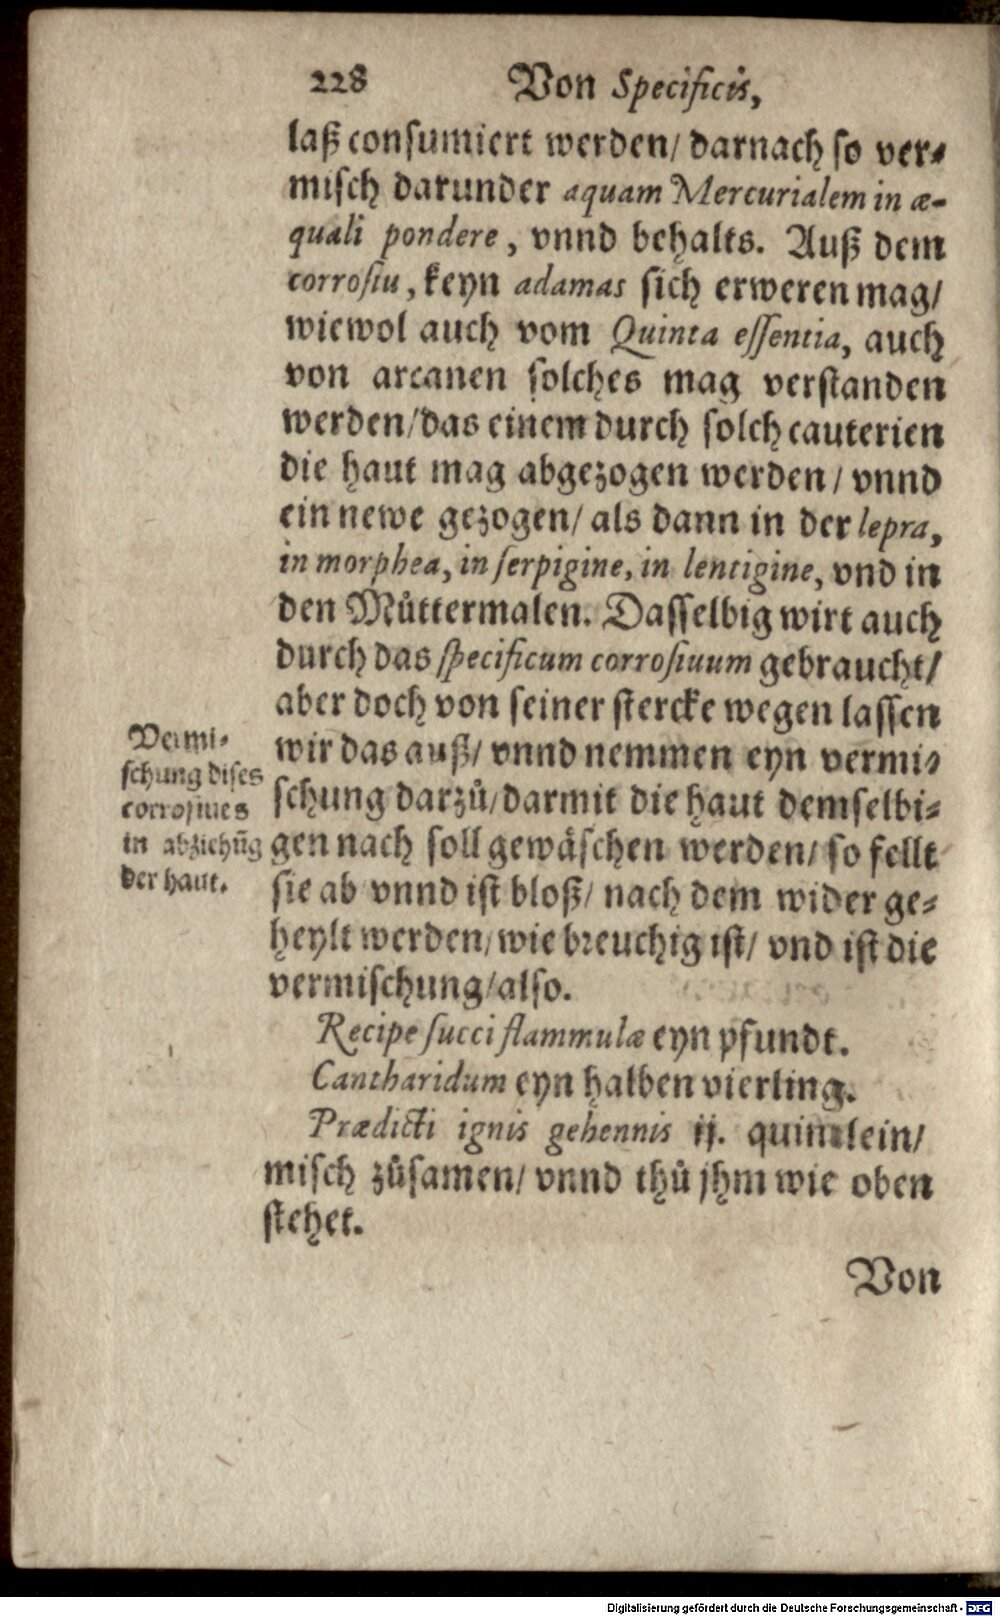 228 Von Specificis,
laß consumiert werden/ darnach so ver⸗
misch darunder aquam Mercurialem in æ-
quali pondere, vnnd behalts. Auß dem
corrosiu, keyn adamas sich erweren mag/
wiewol auch vom Quinta essentia, auch
von arcanen solches mag verstanden
werden/ das einem durch solch cauterien
die haut mag abgezogen werden/ vnnd
ein newe gezogen/ als dann in der lepra,
in morphea, in serpigine, in lentigine, vnd in
den Můttermalen. Dasselbig wirt auch
durch das specificum corrosiuum gebraucht/
aber doch von seiner stercke wegen lassen
wir das auß/ vnnd nemmen eyn vermi⸗
schung darzů/ darmit die haut demselbi⸗
gen nach soll gewäschen werden/ so fellt
sie ab vnnd ist bloß/ nach dem wider ge⸗
heylt werden/ wie breuchig ist/ vnd ist die
vermischung/ also.
Vermi⸗
schung dises
corrosiues
in abziehũg
der haut.
Recipe succi flammulæ eyn pfundt.
Cantharidum eyn halben vierling.
Prædicti ignis gehennis ij. quintlein/
misch zůsamen/ vnnd thů jhm wie oben
stehet.
Von
Digitalisierung gefördert durch die Deutsche Forschungsgemeinschaft - DFG